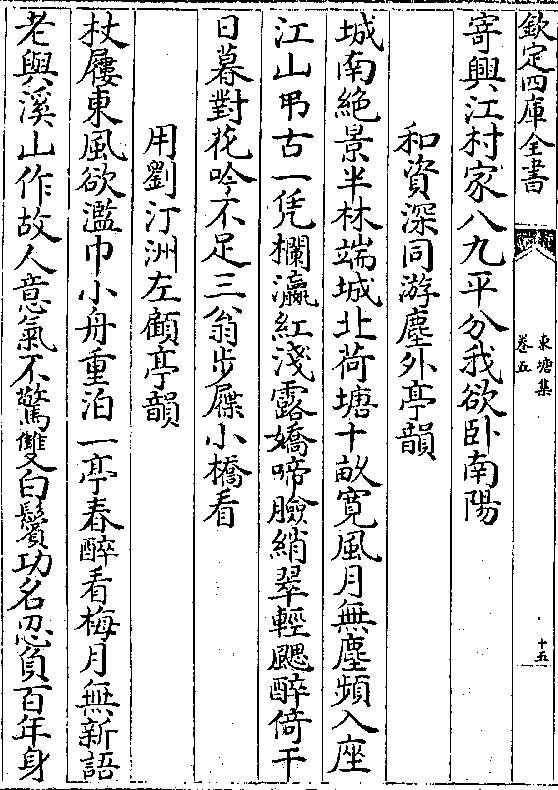 欽定四庫全書
東塘集
卷五
十五
寄興江村家八九平分我欲卧南陽
和資深同游塵外亭韻
城南絶景半林端城北荷塘十畝寛風月無塵頻入座
江山弔古一凭欄瀛紅淺露嬌啼臉綃翠輕颸醉倚干
日暮對花吟不足三翁步屧小橋看
用劉汀洲左顧亭韻
杖屨東風欲濫巾小舟重泊一亭春醉看梅月無新語
老與溪山作故人意氣不驚雙白鬢功名忍負百年身